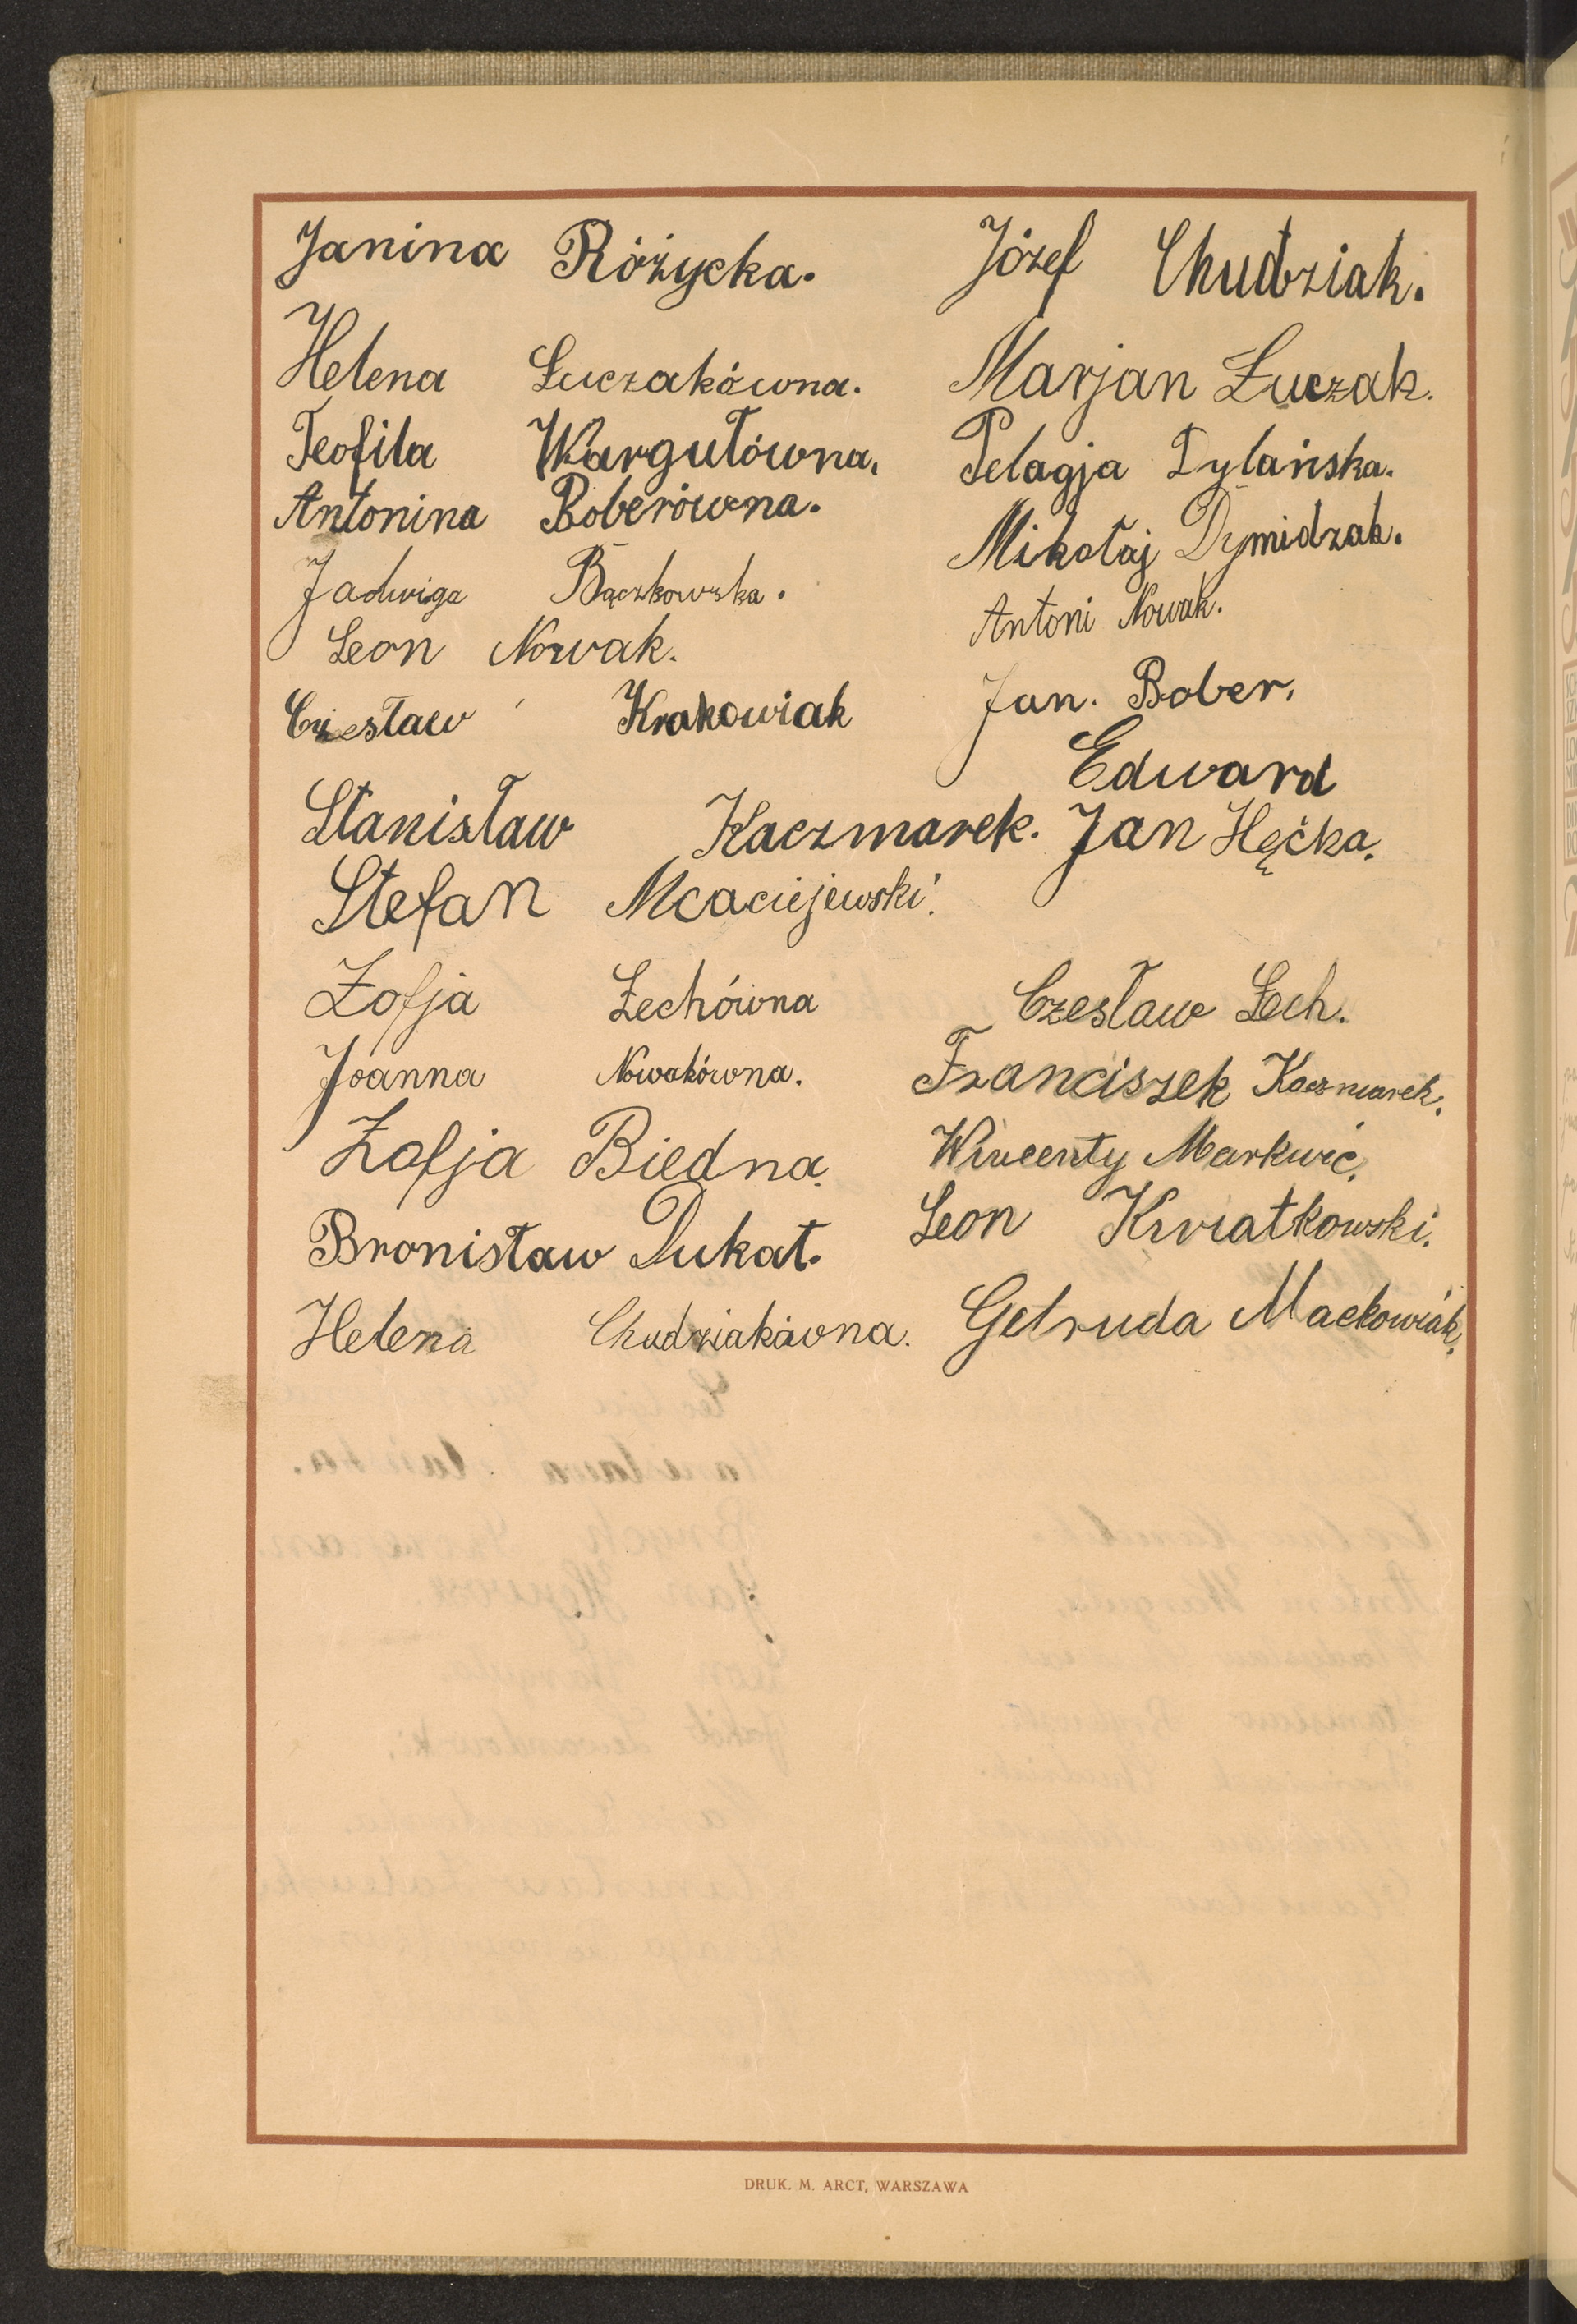 Janina Różycka.
Helena Łuczakówna.
Teofila Wargułówna.
Antonina Boberówna.
Jadwiga Bączkowska.
Leon Nowak.
Czesław Krakowiak
Stanisław Kaczmarek.
Stefan Mcaciejewski.
Zofja Lechówna
Joanna Nowakówna.
Zofja Biedna.
Bronisław Dukat.
Helena Chudziakówna.
Józef Chudziak.
Marjan Łuczak.
Pelagja Dylańska.
Mikołaj Dymidzak.
Antoni Nowak.
Jan. Bober.
Edward
Jan Hęćka.
Czesław Lech.
Franciszek Kaczmarek.
Wincenty Markwic.
Leon Kwiatkowski.
Getruda Maćkowiak.
DRUK. M. ARCT, WARSZAWA